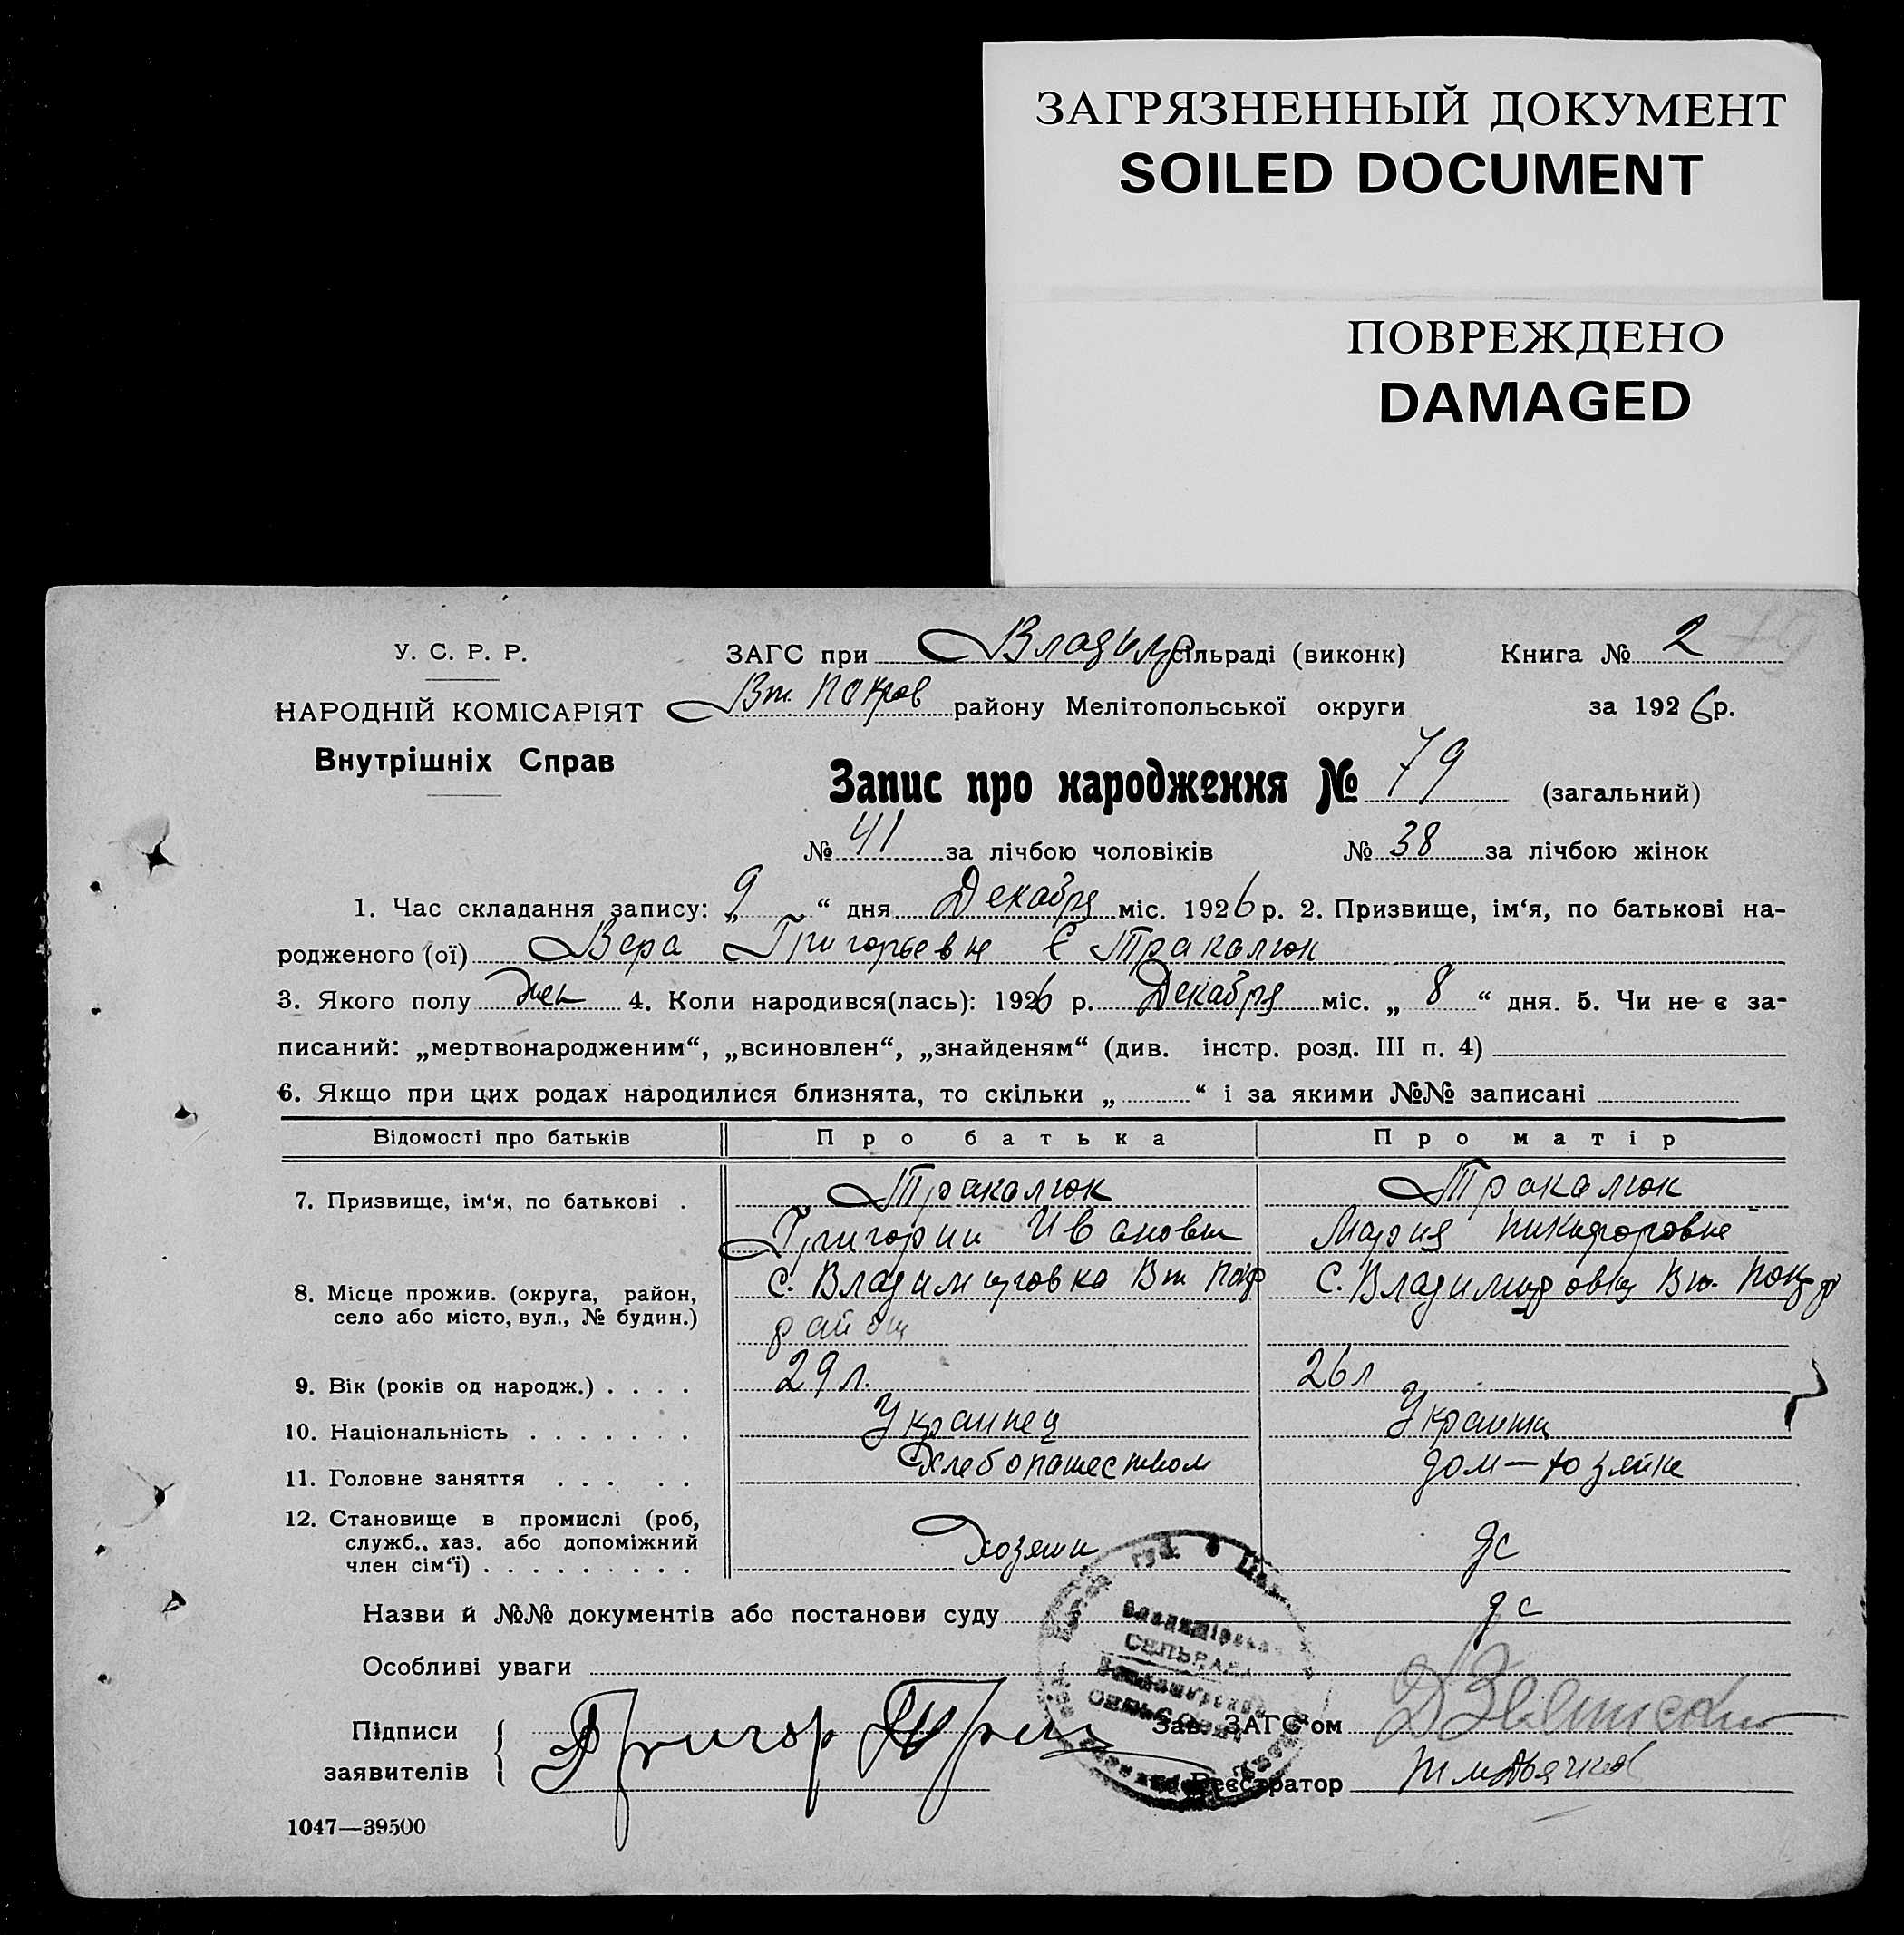 ЗАГРЯЗНЕННЫЙ ДОКУМЕНТ
SOILED DOCUMENT
ПОВРЕЖДЕНО
DAMAGED
У. С. Р. Р.
НАРОДНІЙ КОМІСАРІЯТ
Внутрішніх Справ
ЗАГС при Владим сільраді (виконк) Книга № 2
Вт. Покров району Мелітопольської округи за 1926 р.
Запис про народження № 79 (загальний)
№ 41 за лічбою чоловіків № 38 за лічбою жінок
1. Час складання запису: „9“ дня Декабря міс. 1926 р. 2. Призвище, ім‘я, по батькові на-
родженого (ої) Вера Григорьевна Тракалюк
3. Якого полу жен 4. Коли народився(лась): 1926 р. Декабря міс. „8“ дня. 5. Чи не є за-
писаний: „мертвонародженим“, „всиновлен“, „знайденям“ (див. інстр. розд. III п. 4)
6. Якщо при цих родах народилися близнята, то скільки „ “ і за якими №№ записані
Відомості про батьків Про батька Про матір
7. Призвище, ім‘я, по батькові . Тракалюк Тракалюк
Григорий Иванович Мария Никифоровна
8. Місце прожив. (округа, район, село або місто, вул., № будин.) С. Владимировка Вт Покр С. Владимировка Вт. Покр р
района
9. Вік (років од народж.) . . . . 29 л. 26 л
10. Національність . . . . . . . Украинец Украинка
11. Головне заняття . . . . . Хлебопашеством дом-хозяйка
12. Становище в промислі (роб, служб., хаз. або допоміжний член сім‘ї) . . . . . . . . . Хозяин
Назви й №№ документів або постанови суду
Особливі уваги
Підписи заявителів Григор Зав. ЗАГС‘ом
Реєстратор
СЕЛЬРАДА
1047—39500